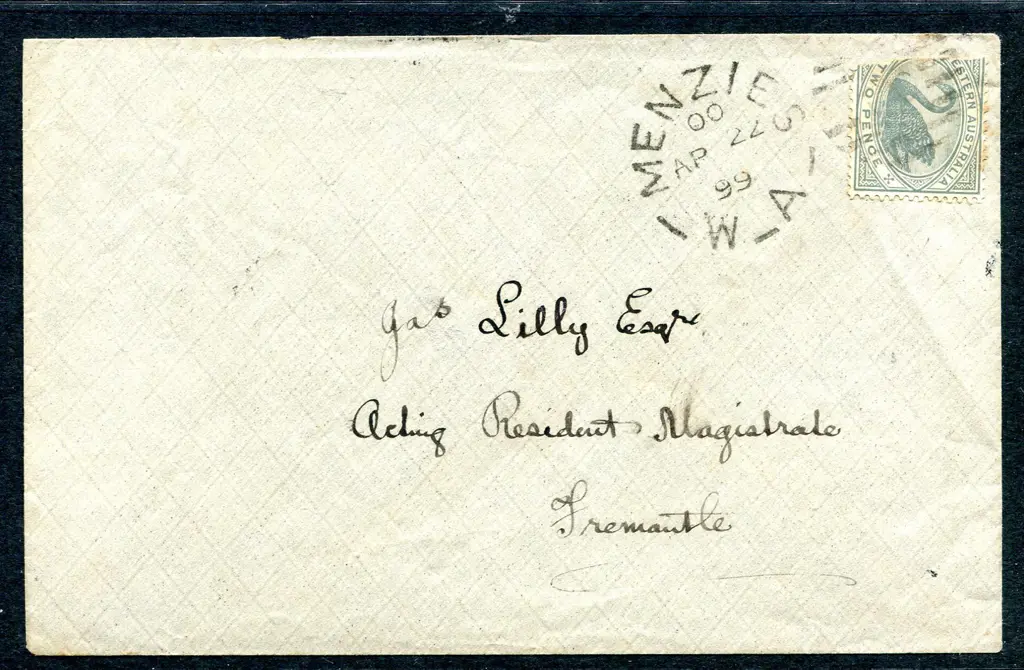 MENZIES
00
AP 22
99
W.A
WESTERN AUSTRALIA
TWO PENCE
Jas Lilly Esqre
Acting Resident Magistrate
Fremantle